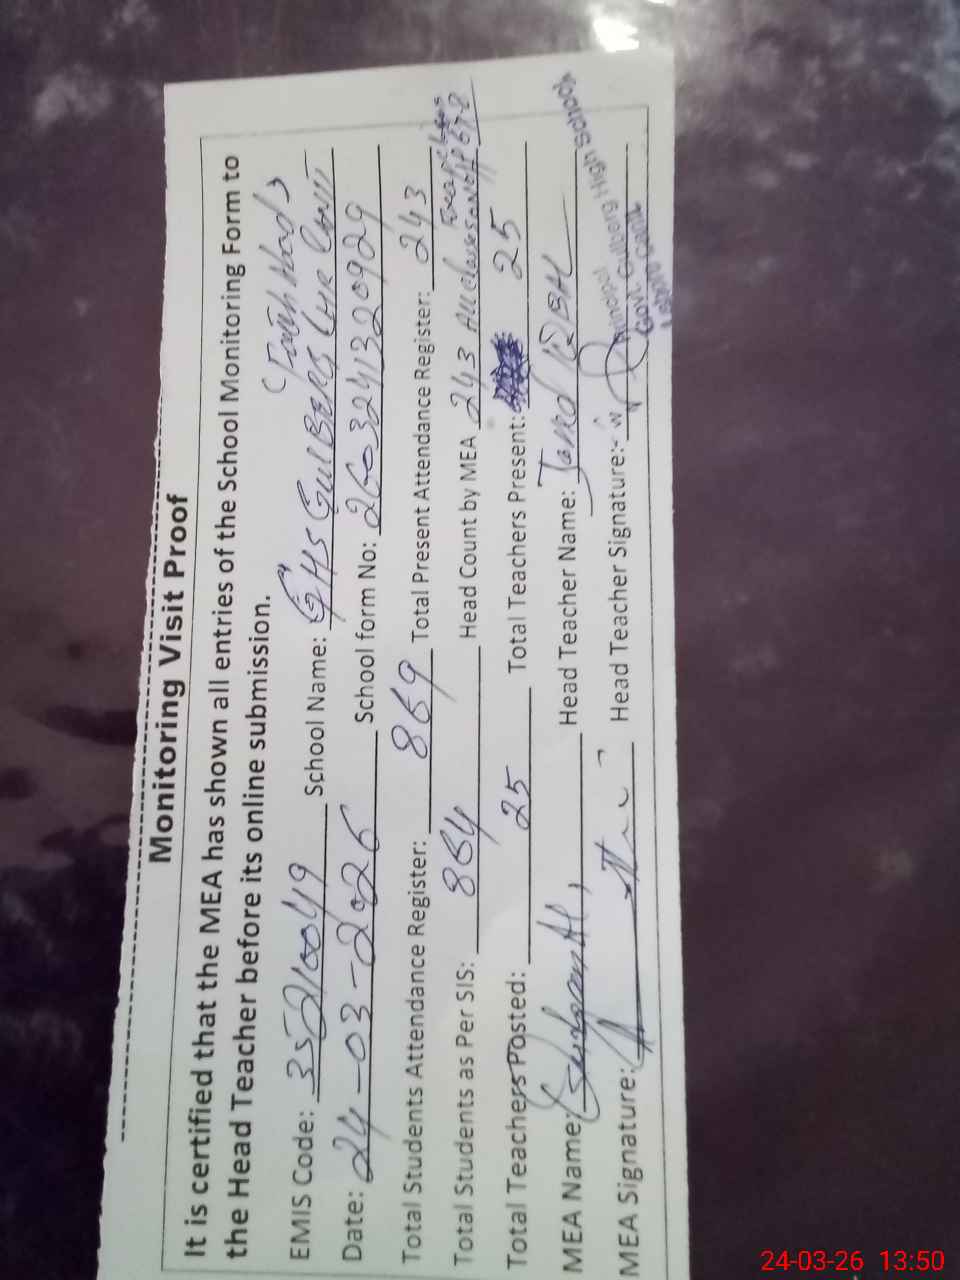 Monitoring Visit Proof
It is certified that the MEA has shown all entries of the School Monitoring Form to
the Head Teacher before its online submission.
EMIS Code: 35210049 School Name: GHS Gulberg LHR Cantt
Date: 24-03-2026 School form No: 2603241320929
Total Students Attendance Register: 869 Total Present Attendance Register: 243
Total Students as Per SIS: 864 Head Count by MEA 243 All classes
Total Teachers Posted: 25 Total Teachers Present: 25
MEA Name: Head Teacher Name:
MEA Signature: Head Teacher Signature:-
Principal
Govt. Gulberg High School
Lahore Cantt.
24-03-26 13:50